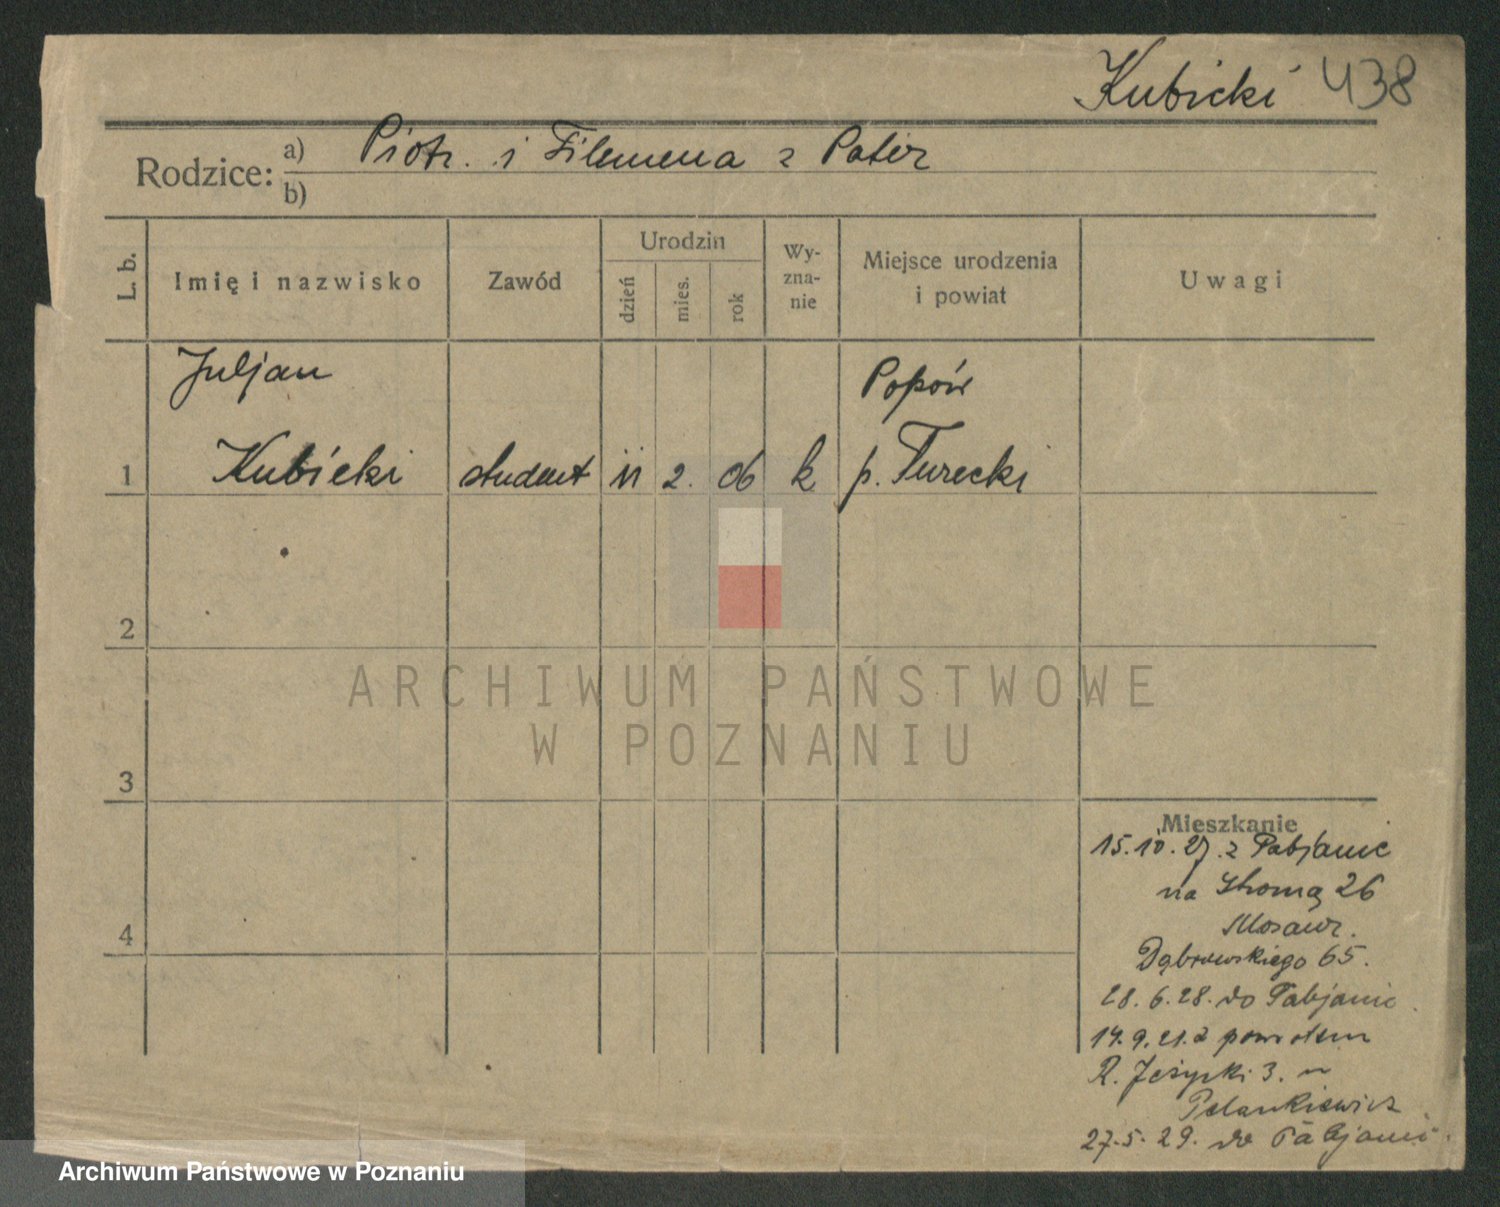 Kubicki 438
Rodzice: a) Piotr. i Filemena z Pater
b)
L. b. Imię i nazwisko Zawód Urodzin dzień mies. rok Wy-zna-nie Miejsce urodzenia i powiat Uwagi
Juljan Popów
1 Kubicki student 11 2. 06 k p. Turecki
2
ARCHIWUM PAŃSTWOWE
W POZNANIU
3
Mieszkanie
15.10.27. z Pabjanic
na 26
4
Dąbrowskiego 65.
28.6.28. do Pabjanic
z powrotem
R. Jeżycki 3.
27.5.29. do Pabjanic
Archiwum Państwowe w Poznaniu